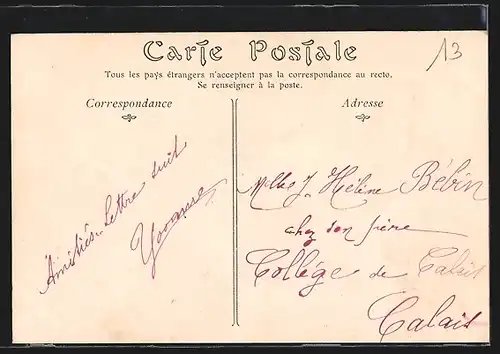 Carte Postale
Tous les pays étrangers n'acceptent pas la correspondance au recto.
Se renseigner à la poste.
Correspondance
Adresse
13
Amitiés. Lettre suit
Yvonne
Melles J. Hélène Bébin
chez son père
Collège de Calais
Calais